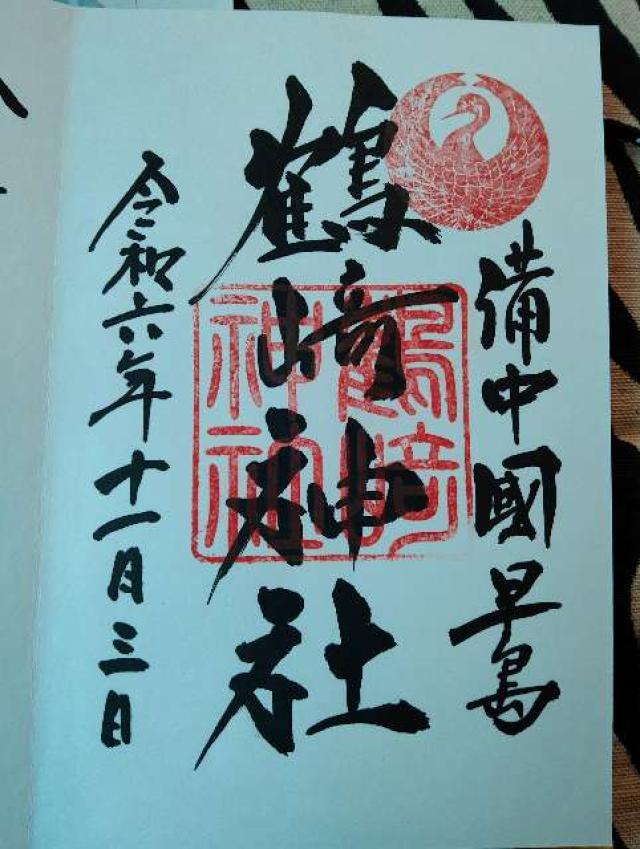 備中國早島
鶴崎神社
鶴崎神社
令和六年十一月三日